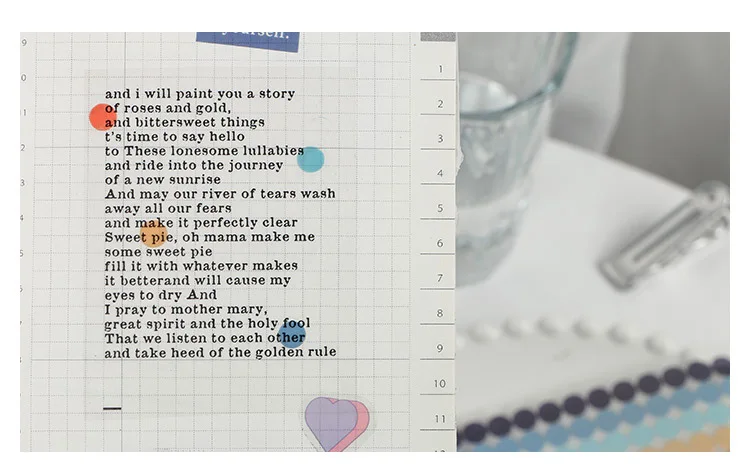 yourself.
and i will paint you a story
of roses and gold,
and bittersweet things
t's time to say hello
to These lonesome lullabies
and ride into the journey
of a new sunrise
And may our river of tears wash
away all our fears
and make it perfectly clear
Sweet pie, oh mama make me
some sweet pie
fill it with whatever makes
it betterand will cause my
eyes to dry And
I pray to mother mary,
great spirit and the holy fool
That we listen to each other
and take heed of the golden rule
9
0
1
2
3
4
5
6
7
8
1
2
3
4
5
6
7
8
9
10
11